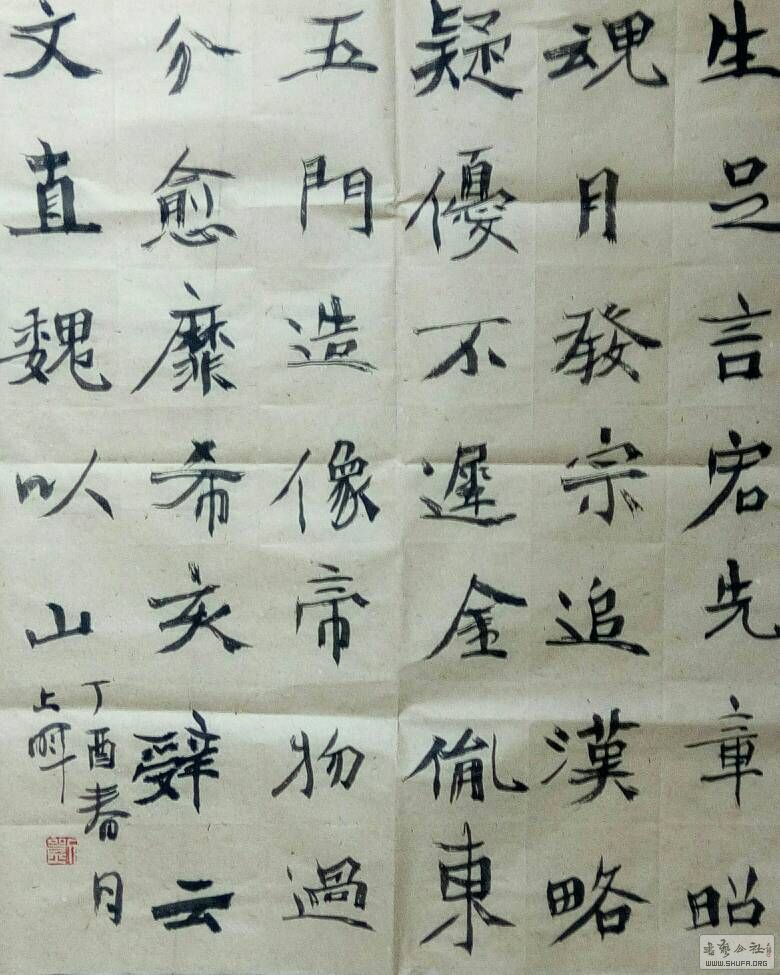 生足言宕先章昭
魂月發宗追漢略
疑優不遲金胤東
五門造像帝物過
分愈靡希亥辭云
文直魏以山
丁酉春月
上
书艺公社
WWW.SHUFA.ORG